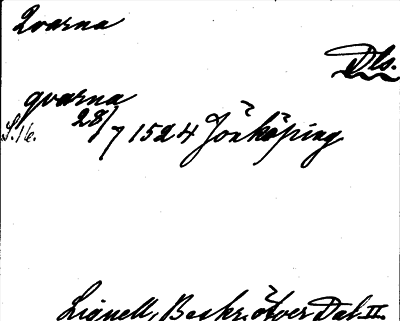 Qvarna
Dls.
qvarna
S. 16. 28/7 1524 Jönköping
Lignell, Beskr. över Dal II.